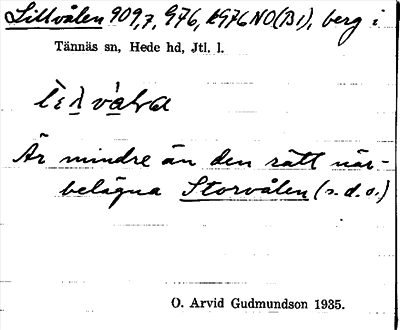 Lillvålen 909,7, 976, k976NO(B1), berg i
Tännäs sn, Hede hd, Jtl. l.
Är mindre än den rätt när-
belägna Storvålen (s.d.o.)
O. Arvid Gudmundson 1935.